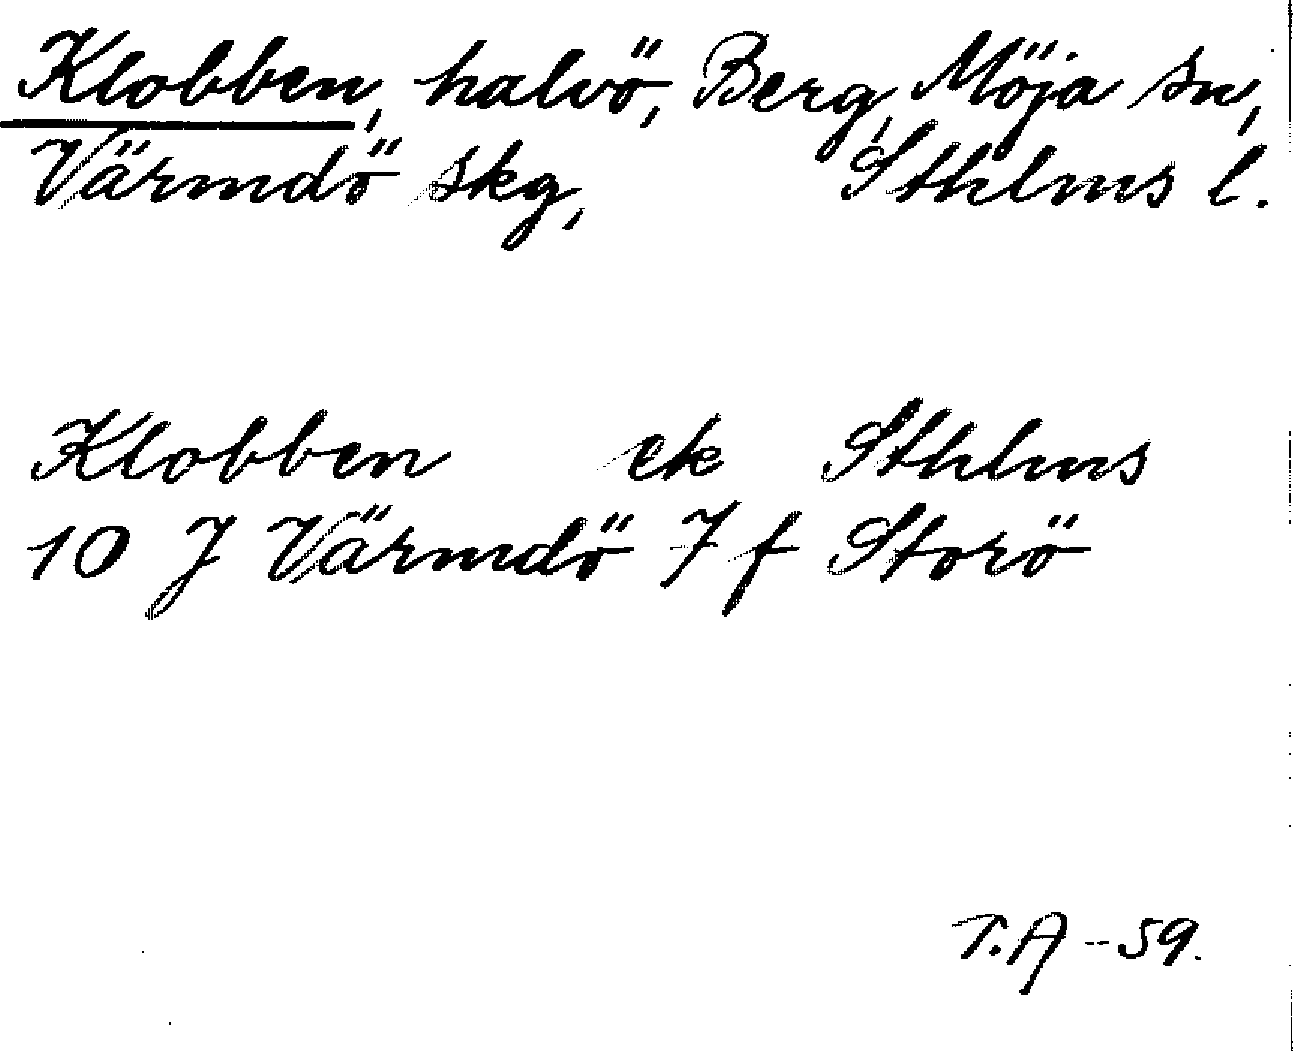 Klobben, halvö, Berg, Möja sn,
Värmdö skg, Sthlms l.
Klobben ek Sthlms
10 J Värmdö 7 f Storö
T.A -59.